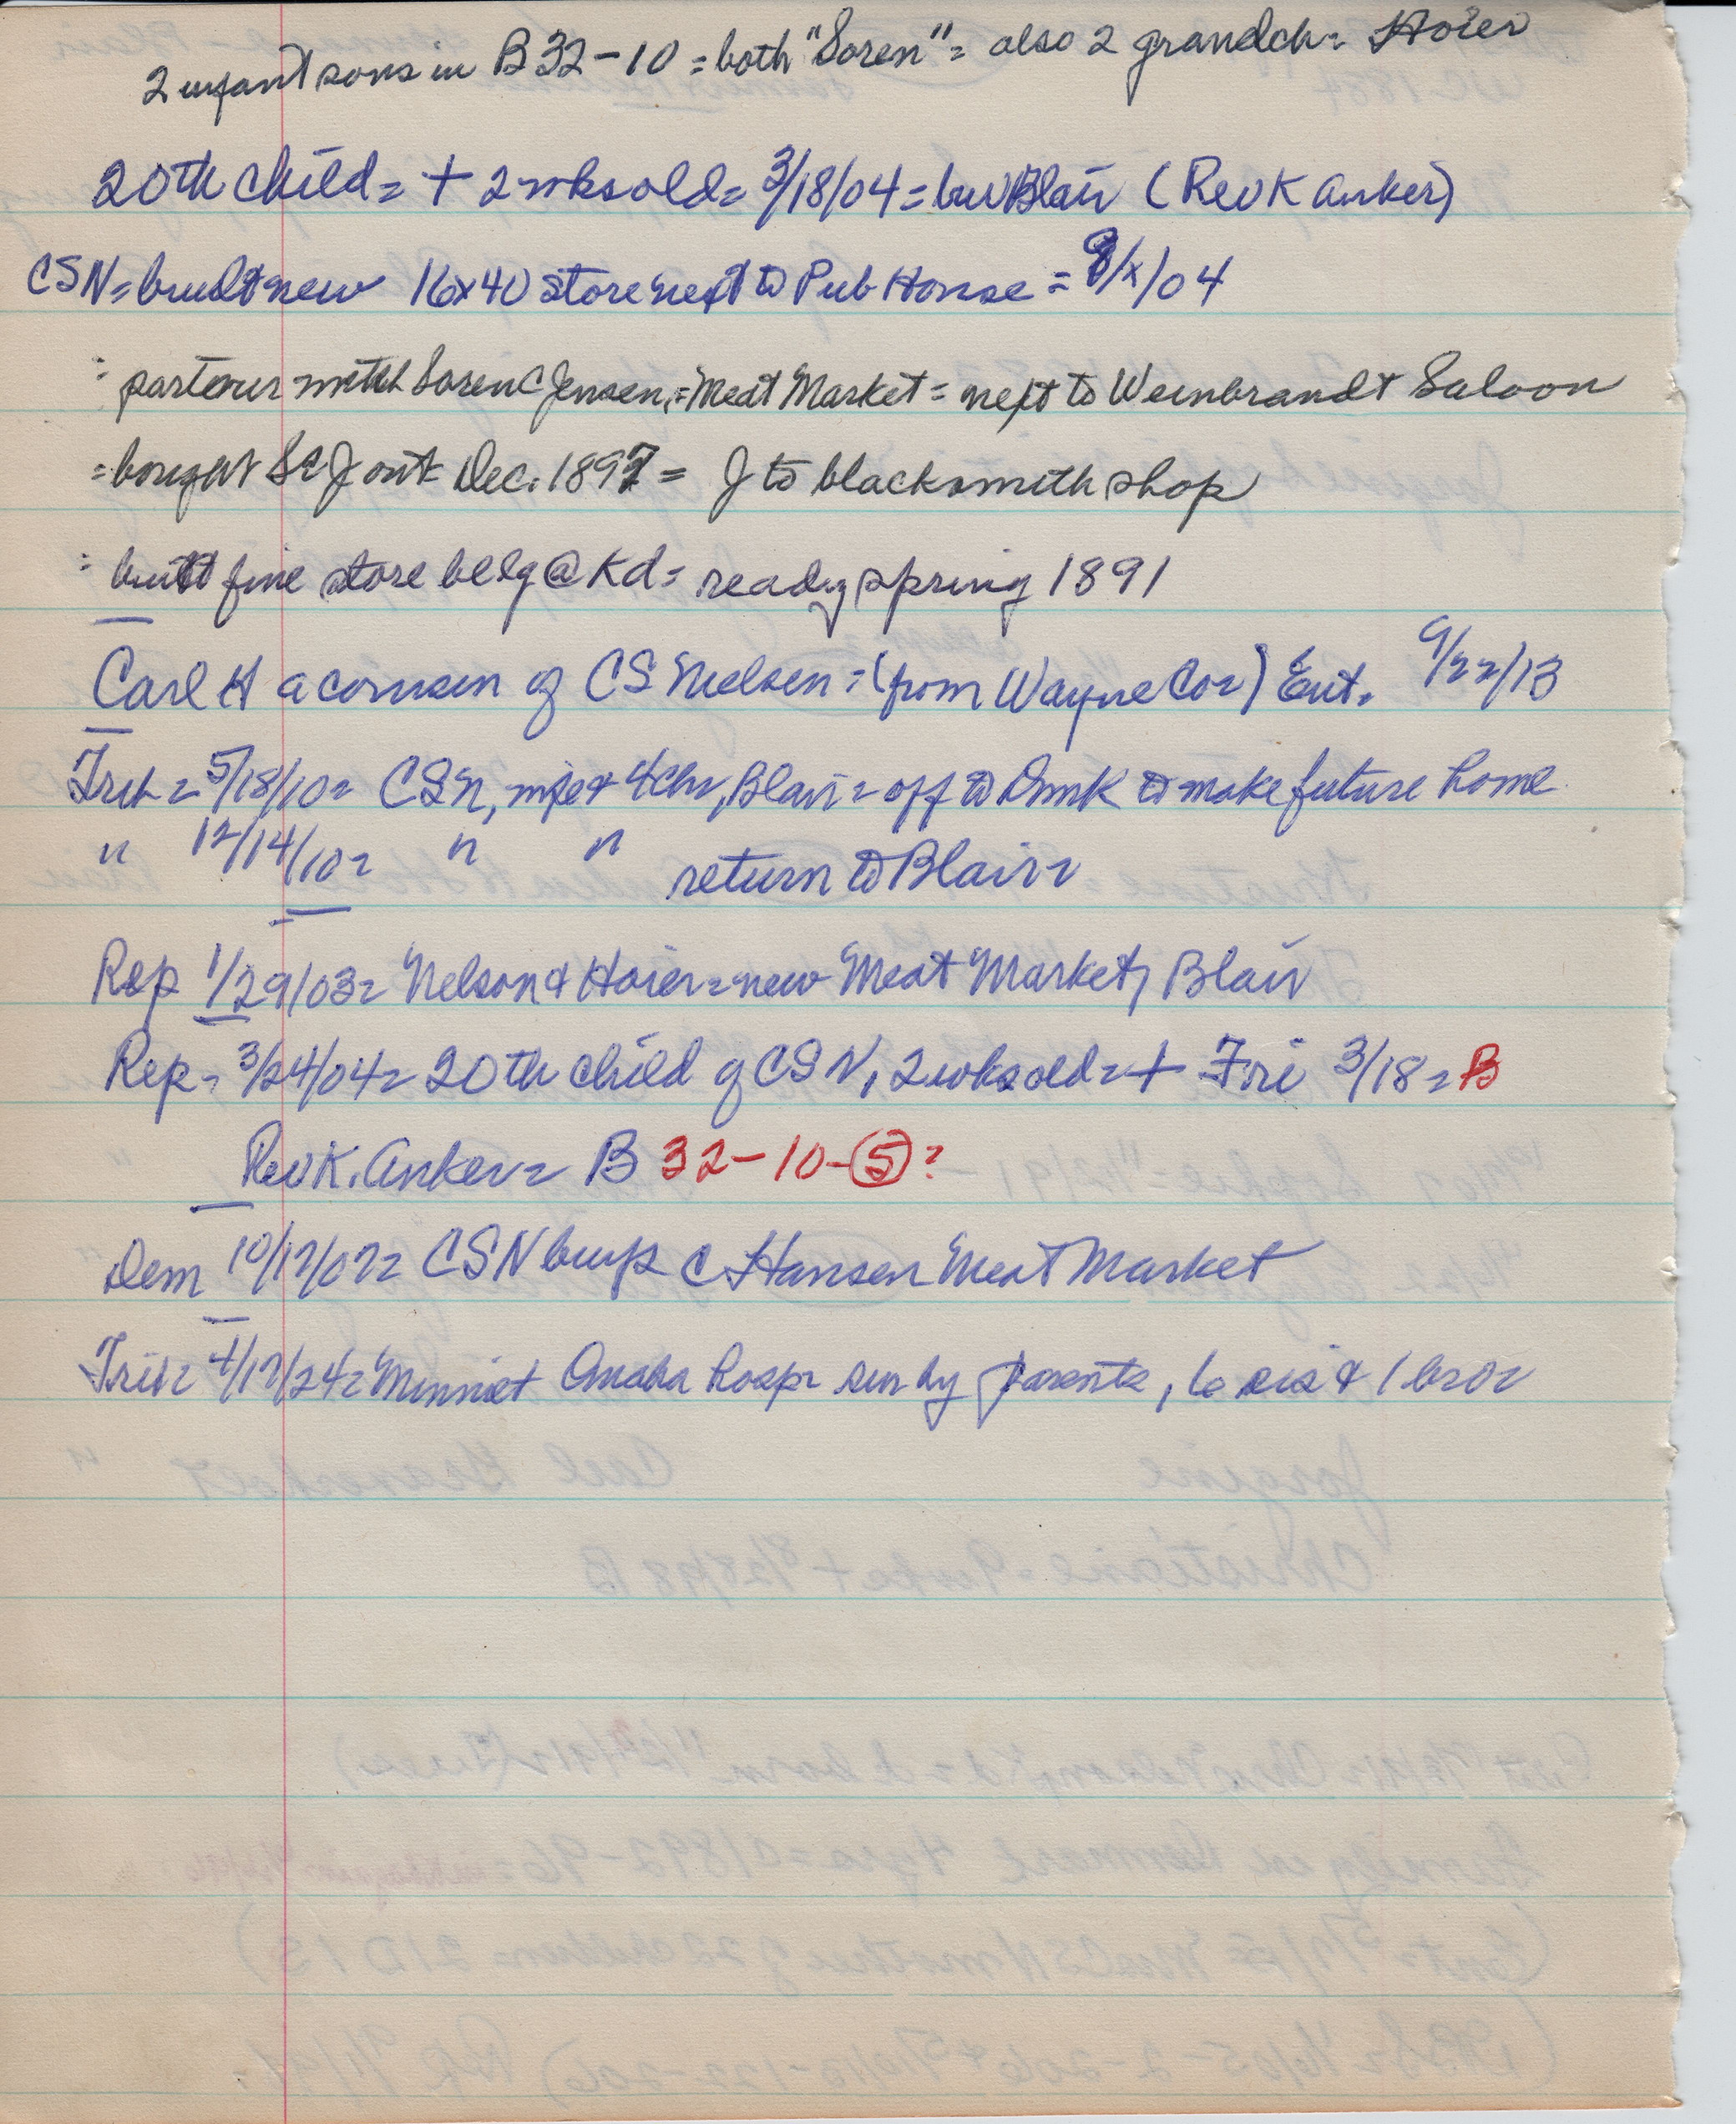 2 infant sons in B32-10 = both "Soren" = also 2 grandch = Hoier
20th child = + 2 wks old = 3/18/04 = bur Blair (Rev K Anker)
CSN = built new 16x40 store next to Pub House = 8/x/04
= partner with Soren C Jensen, = Meat Market = next to Weinbrandt Saloon
= bought SCJ out Dec. 1897 = J to blacksmith shop
= built fine store belg @ Kd = ready spring 1891
Carl H a cousin of CS Nielsen = (from Wayne Co =) Ent. 9/22/13
Trib = 5/18/10 = CSN, wife & 4 chr, Blair = off to Dmk to make future home
" 12/14/10 = " " return to Blair =
Rep 1/29/03 = Nelson & Hoier = new Meat Market, Blair
Rep = 3/24/04 = 20th child of CSN, 2 wks old = + Fri 3/18 = B
Rev K. Anker = B 32-10-5 ?
Dem 10/17/07 = CSN buys C Hansen Meat Market
Trib = 4/17/24 = Minnie + Omaha Hosp = sur by parents, 6 sis & 1 bro =